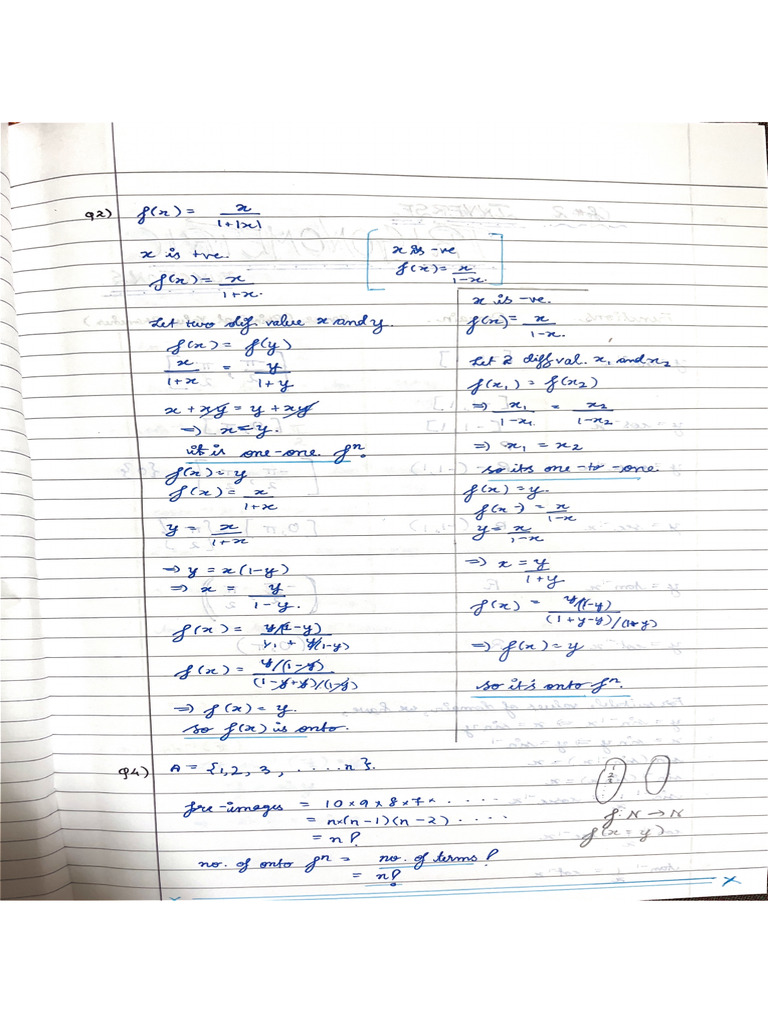 Q2) f(x) = x/(1+|x|)
x is +ve.
f(x) = x/(1+x.)
Let two diff. value x and y.
f(x) = f(y)
x/(1+x) = y/(1+y)
x + xy = y + xy
⇒ x = y.
it is one-one fⁿ.
f(x) = y
f(x) = x/(1+x)
y = x/(1+x)
⇒ y = x(1-y)
⇒ x = y/(1-y.)
f(x) = y/(1-y)
f(x) = (y/(1-y))/((1-y+y)/(1-y))
⇒ f(x) = y.
so f(x) is onto.
[x is -ve
f(x) = x/(1-x.)]
x is -ve.
f(x) = x/(1-x.)
Let 2 diff val. x₁ and x₂
f(x₁) = f(x₂)
⇒ x₁/(1-x₁) = x₂/(1-x₂)
⇒ x₁ = x₂
so its one-to-one.
f(x) = y.
f(x) = x/(1-x)
y = x/(1-x)
⇒ x = y/(1+y)
f(x) =
⇒ f(x) = y
so it's onto fⁿ.
Q4) A = {1,2, 3, ....n}.
Pre-images = 10 × 9 × 8 × 7 × ....
= n×(n-1)(n-2) ....
= n!
no. of onto fⁿ = no. of terms!
= n!
1
2
3
f: N → N
f(x = y)